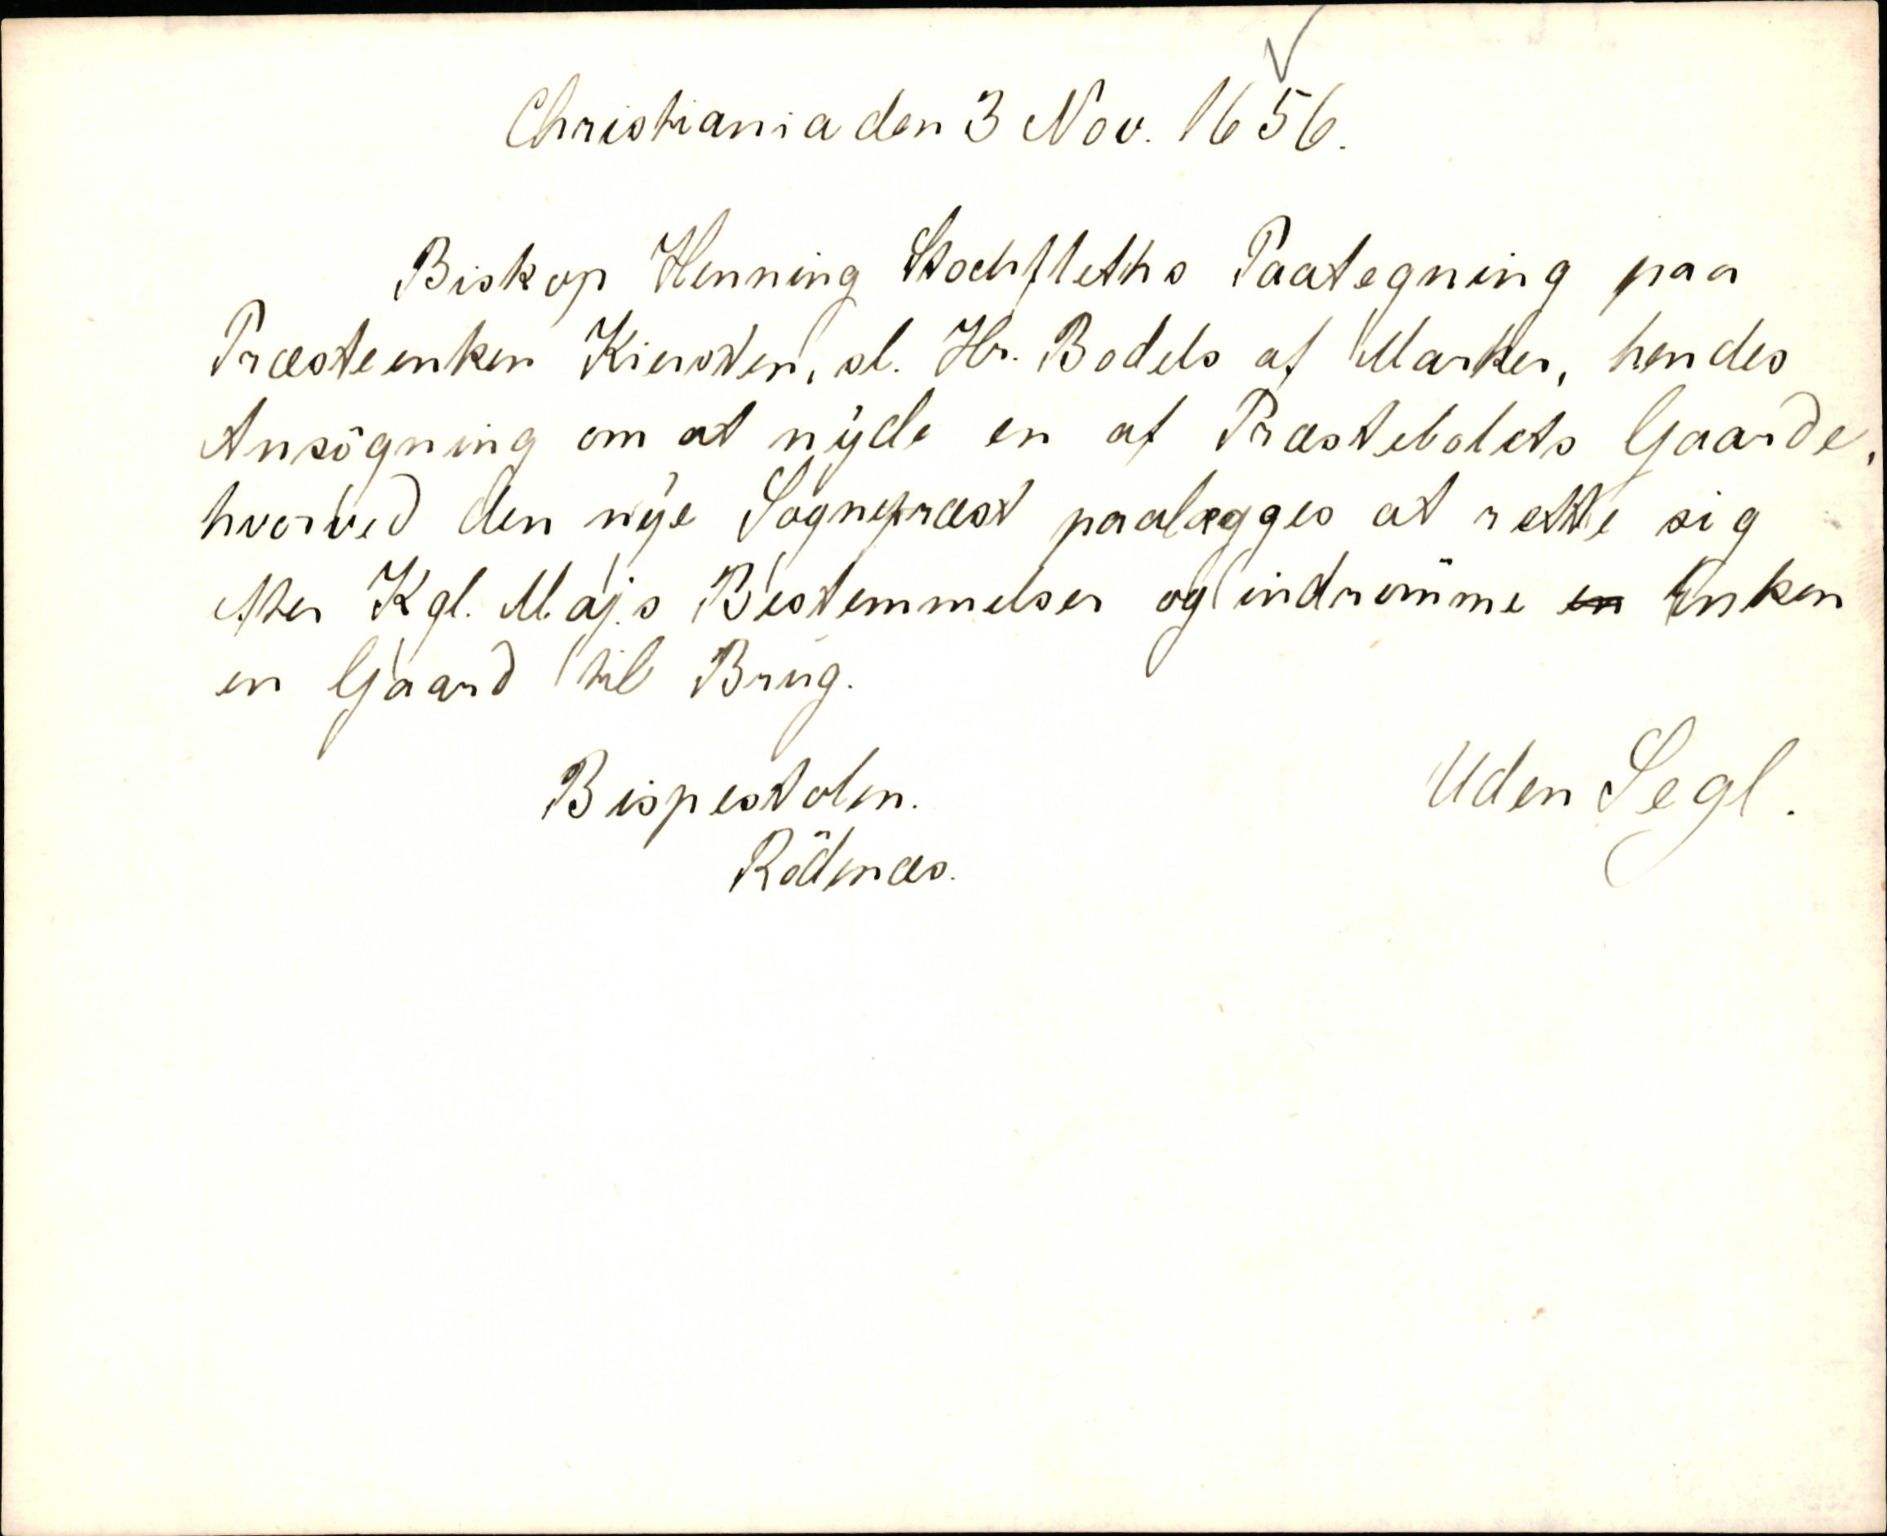 Christiania den 3 Nov. 1656.
Biskop Henning Stockfleths Paategning paa
Præsteenken Kiersten, sl. Hr. Bodels af Marker, hendes
Ansögning om at nyde en af Præstebolets Gaarde,
hvorved den nye Sognepræst paalægges at rette sig
efter Kgl. Maj.s Bestemmelser og indrömme en Enken
en Gaard til Brug.
Bispestolen. Uden Segl.
Rödenæs.